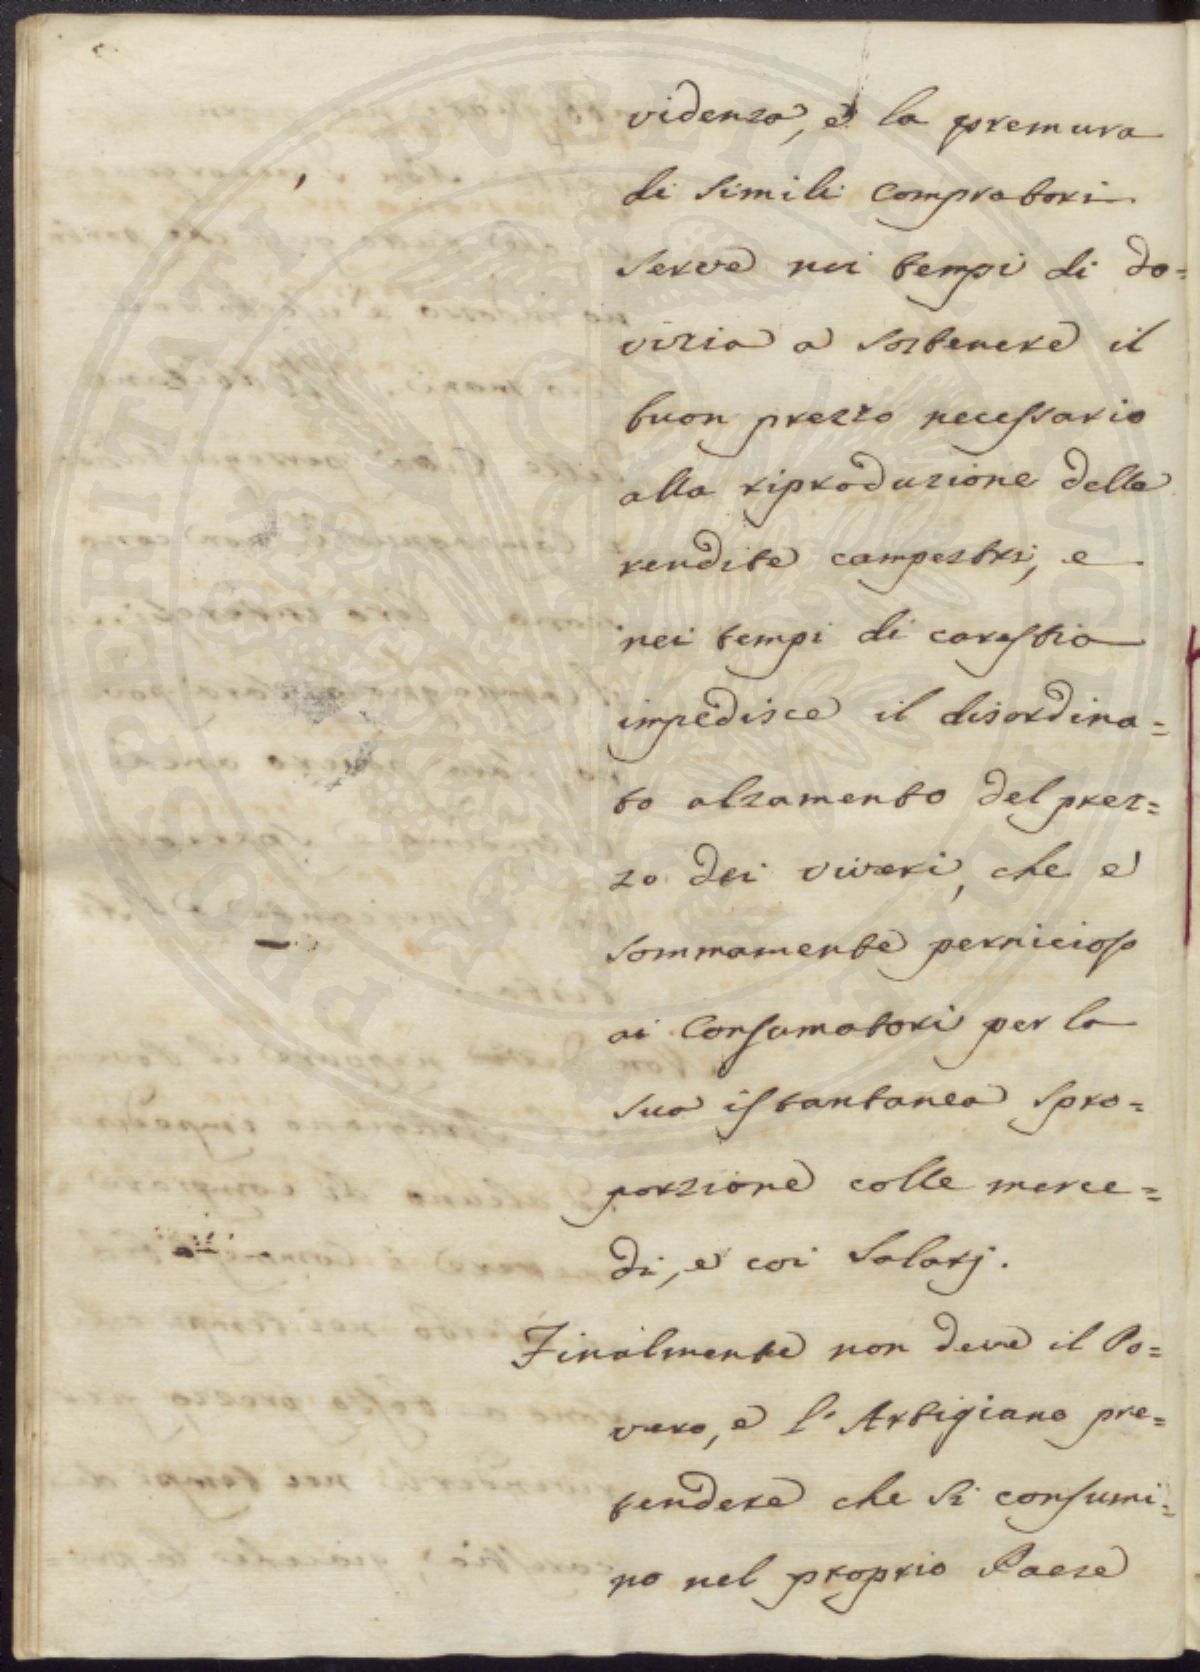 videnza, e la premura
di Simili Compratori
serve nei tempi di do=
vizia a sostenere il
buon prezzo necessario
alla riproduzione delle
rendite campestri, e
nei tempi di carestia
impedisce il disordina=
to alzamento del prez=
zo dei viveri, che e'
sommamente pernicioso
ai Consumatori per la
sua istantanea spro=
porzione colle merce=
di, e coi Salarj.
Finalmente non deve il Po=
vero, e l'Artigiano pre=
tendere che si consumi=
no nel proprio Paese